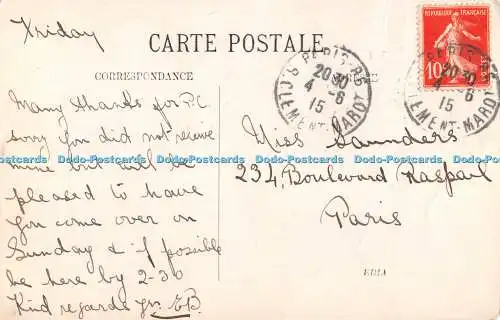 Friday
CARTE POSTALE
CORRESPONDANCE
RÉPUBLIQUE FRANÇAISE
10c
PARIS
20 30
4 -6
15
R. CLEMENT MAROT
PARIS
20 30
4 -6
15
CLEMENT MAROT
Many thanks for P.C
sorry you did not receive
mine but will be
pleased to have
you come over on
Sunday & if possible
be here by 2-30
Kind regards yrs. EB.
Miss Saunders
234 Boulevard Raspail
Paris
EDIA
Dodo-Postcards Dodo-Postcards Dodo-Postcards Dodo-Postcards Dodo-Postcards Dodo-Postcards